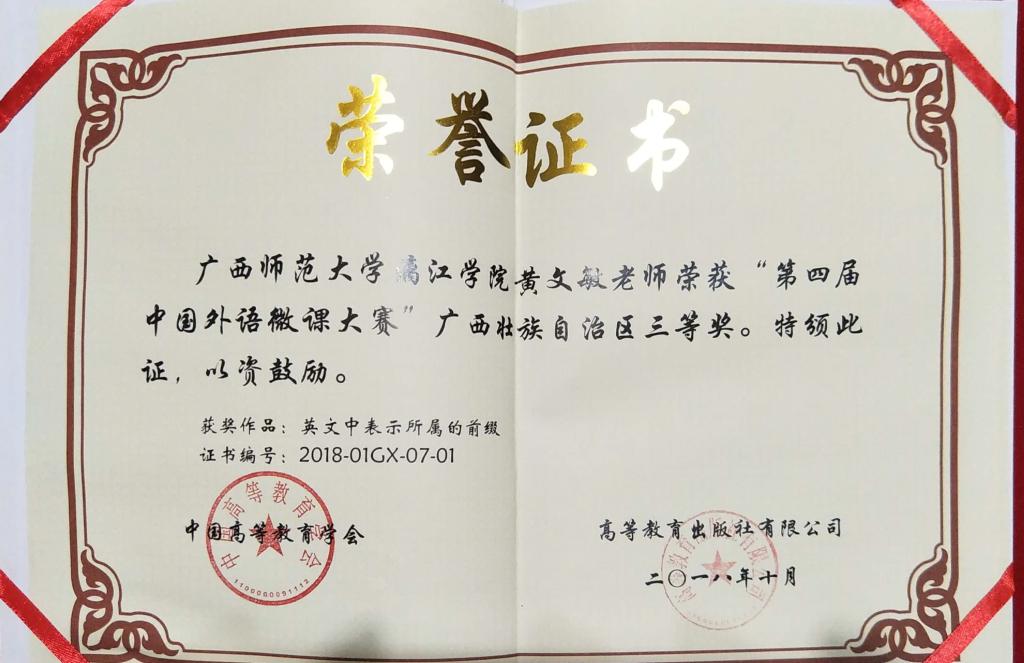 荣誉证书
广西师范大学漓江学院黄文敏老师荣获“第四届
中国外语微课大赛”广西壮族自治区三等奖。特颁此
证，以资鼓励。
获奖作品：英文中表示所属的前缀
证书编号：2018-01GX-07-01
中国高等教育学会
中国高等教育学会
1100000091112
高等教育出版社有限公司
高等教育出版社有限公司
二〇一八年十月